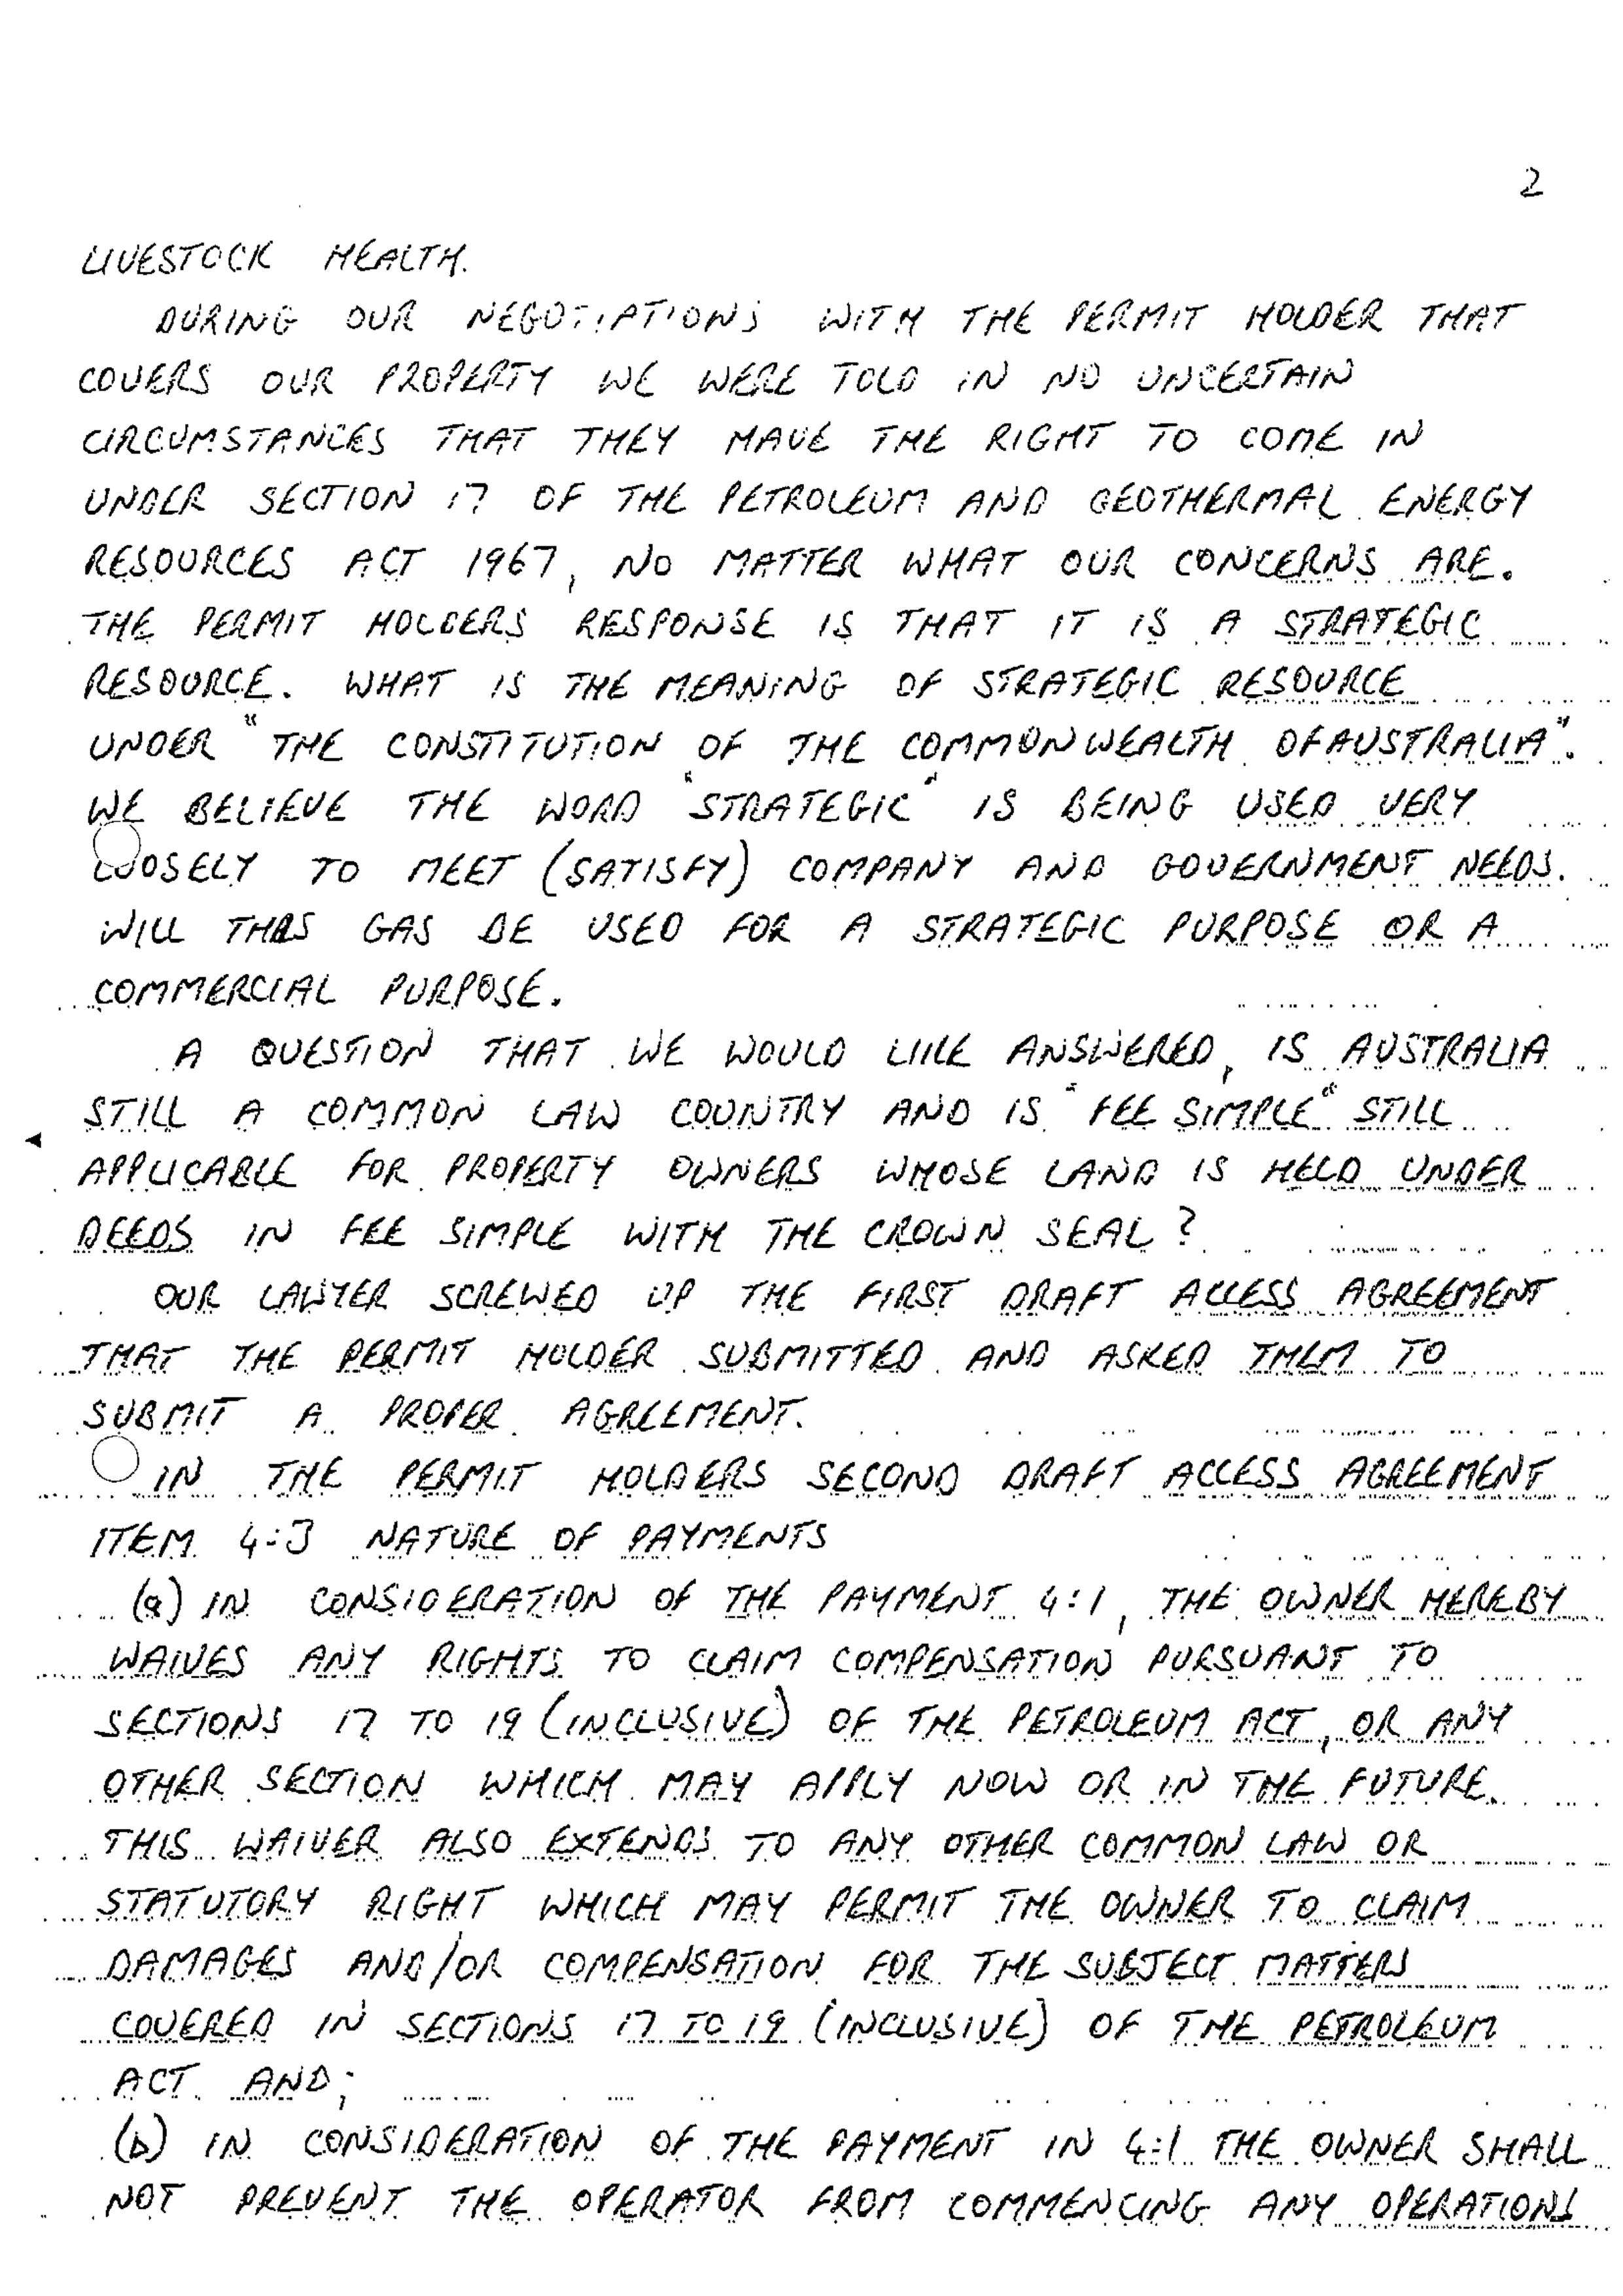 2
LIVESTOCK HEALTH.
DURING OUR NEGOTIATIONS WITH THE PERMIT HOLDER THAT
COVERS OUR PROPERTY WE WERE TOLD IN NO UNCERTAIN
CIRCUMSTANCES THAT THEY HAVE THE RIGHT TO COME IN
UNDER SECTION 17 OF THE PETROLEUM AND GEOTHERMAL ENERGY
RESOURCES ACT 1967, NO MATTER WHAT OUR CONCERNS ARE.
THE PERMIT HOLDERS RESPONSE IS THAT IT IS A STRATEGIC
RESOURCE. WHAT IS THE MEANING OF STRATEGIC RESOURCE
UNDER "THE CONSTITUTION OF THE COMMONWEALTH OF AUSTRALIA".
WE BELIEVE THE WORD "STRATEGIC" IS BEING USED VERY
LOOSELY TO MEET (SATISFY) COMPANY AND GOVERNMENT NEEDS.
WILL THIS GAS BE USED FOR A STRATEGIC PURPOSE OR A
COMMERCIAL PURPOSE.
A QUESTION THAT WE WOULD LIKE ANSWERED, IS AUSTRALIA
STILL A COMMON LAW COUNTRY AND IS "FEE SIMPLE" STILL
APPLICABLE FOR PROPERTY OWNERS WHOSE LAND IS HELD UNDER
DEEDS IN FEE SIMPLE WITH THE CROWN SEAL?
OUR LAWYER SCREWED UP THE FIRST DRAFT ACCESS AGREEMENT
THAT THE PERMIT HOLDER SUBMITTED AND ASKED THEM TO
SUBMIT A PROPER AGREEMENT.
IN THE PERMIT HOLDERS SECOND DRAFT ACCESS AGREEMENT
ITEM 4:3 NATURE OF PAYMENTS
(a) IN CONSIDERATION OF THE PAYMENT 4:1, THE OWNER HEREBY
WAIVES ANY RIGHTS TO CLAIM COMPENSATION PURSUANT TO
SECTIONS 17 TO 19 (INCLUSIVE) OF THE PETROLEUM ACT, OR ANY
OTHER SECTION WHICH MAY APPLY NOW OR IN THE FUTURE.
THIS WAIVER ALSO EXTENDS TO ANY OTHER COMMON LAW OR
STATUTORY RIGHT WHICH MAY PERMIT THE OWNER TO CLAIM
DAMAGES AND/OR COMPENSATION FOR THE SUBJECT MATTERS
COVERED IN SECTIONS 17 TO 19 (INCLUSIVE) OF THE PETROLEUM
ACT AND;
(b) IN CONSIDERATION OF THE PAYMENT IN 4:1 THE OWNER SHALL
NOT PREVENT THE OPERATOR FROM COMMENCING ANY OPERATIONS